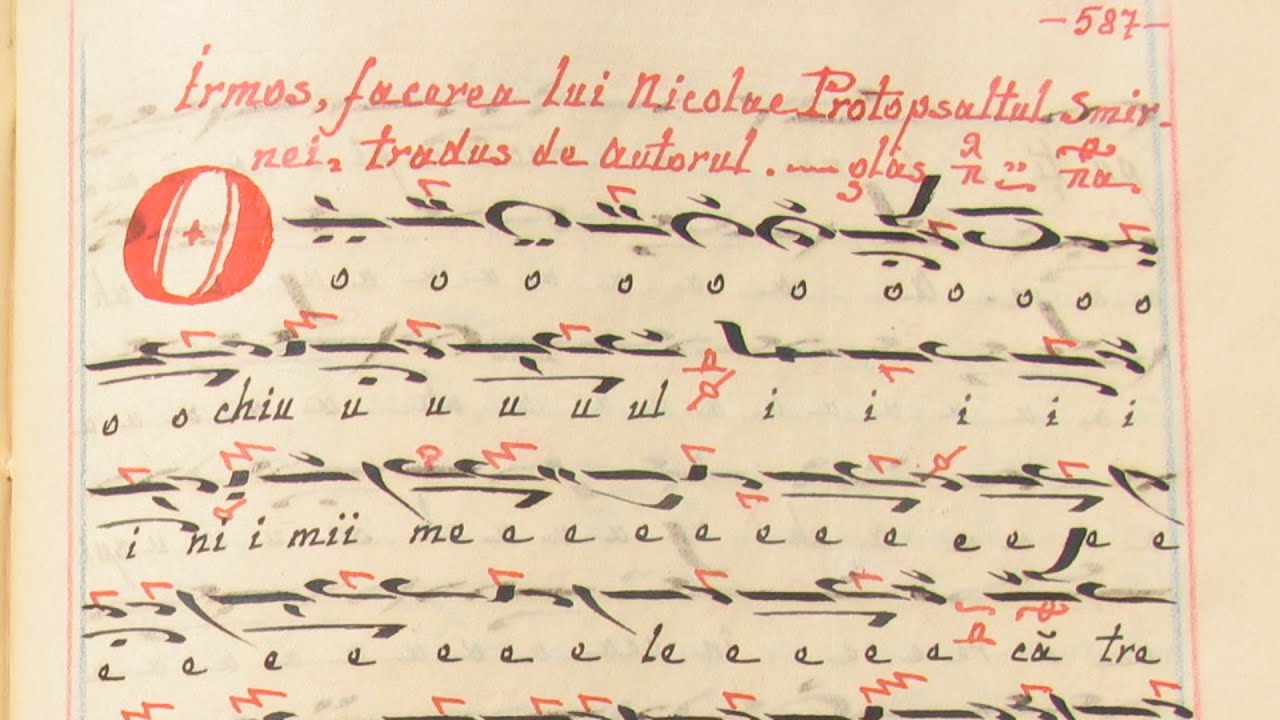 —587—
Irmos, facerea lui Nicolae Protopsaltul Smir-
nei, tradus de autorul. — glas
O o o o o o o o o o o o
o o chiu u u u u ul i i i i i
i ni i mii me e e e e e e e e e e
e e e e e e e le e e e e că tre